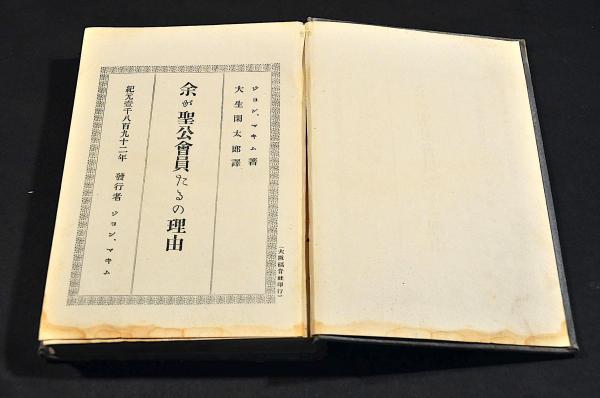 ジヨン、マキム著
大生閑太郎譯
余が聖公會員たるの理由
紀元壹千八百九十二年　發行者　ジヨン、マキム
(大阪福音社印行)